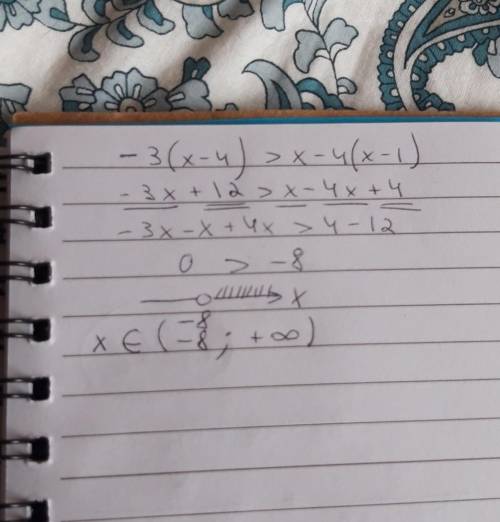 -3(x-4) > x-4(x-1)
-3x + 12 > x - 4x + 4
-3x - x + 4x > 4 - 12
0 > -8
x
-8
x ∈ (-8; +∞)